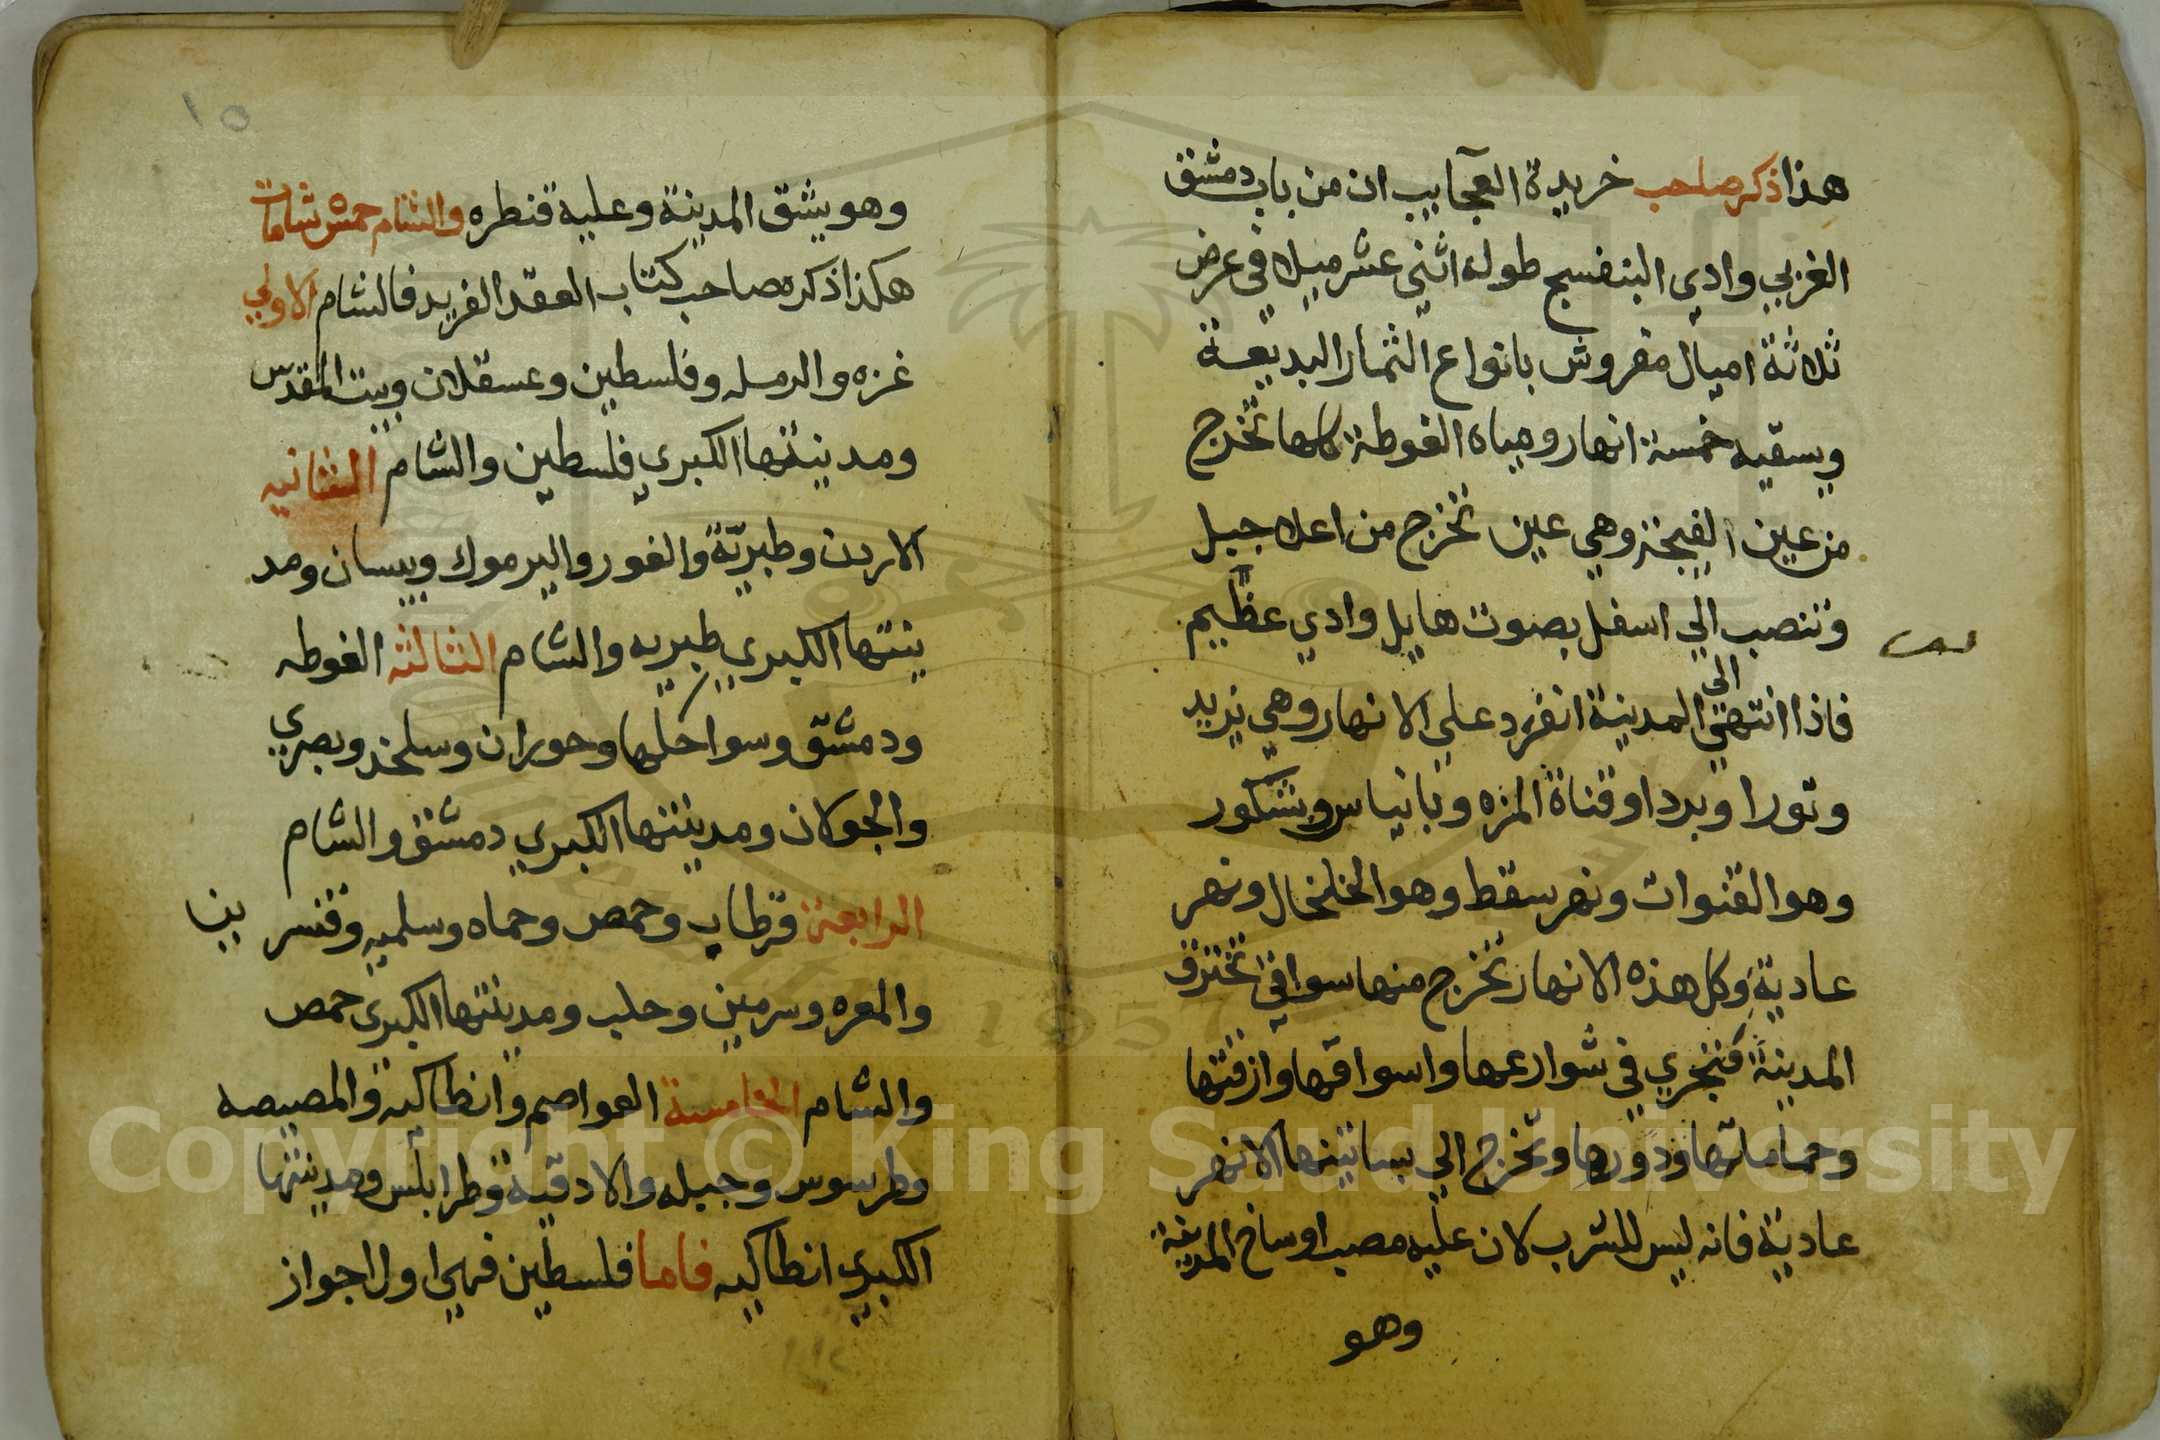 هذا ذكر صاحب خريدة العجايب ان من باب دمشق
الغربي وادي البنفسج طوله اثني عشر ميلا في عرض
ثلاثة اميال مفروش بانواع الثمار البديعة
ويسقيه خمسة انهار ومياه الغوطة كلها تخرج
من عين الفيجة وهي عين تخرج من اعلا جبل
وتنصب الي اسفل بصوت هايل وادي عظيم
فاذا انتهي الي المدينة انفرد علي الانهار وهي يزيد
وتورا وبردا وقناة المزه وبانياس وبشكور
وهو القنوات ونهر سقط وهو الخلخال ونهر
عادية وكل هذه الانهار تخرج منها سواقي تخترق
المدينة فتجري في شوارعها واسواقها وازقتها
وحماماتها ودورها وتخرج الي بساتينها الانهر
عادية فانه ليس للشرب لان عليه مصب اوساخ المدينة
وهو
١٥
وهو يشق المدينة وعلية قنطره والشام خمس شامات
هكذا ذكره صاحب كتاب العقد الفريد فالشام الاولي
غزه والرمله وفلسطين وعسقلان وبيت المقدس
ومدينتها الكبري فلسطين والشام الثانيه
الاردن وطبريّة والغور واليرموك وبيسان ومد
ينتها الكبري طبريه والشام الثالثه الغوطه
ودمشق وسواحلها وحوران وسلخد وبصري
والجولان ومدينتها الكبري دمشق والشام
الرابعة قرطاب وحمص وحماه وسلميه وقنسرين
والمعره وسرمين وحلب ومدينتها الكبري حمص
والشام الخامسة العواصم وانطاكيه والمصيصه
وطرسوس وجبله والادقية وطرابلس ومدينتها
الكبري انطاكيه فاما فلسطين فهي اول اجواز
Copyright © King Saud University
1957